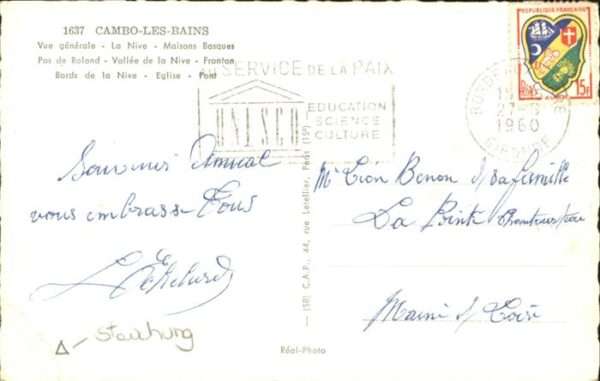 1637 CAMBO-LES-BAINS
Vue générale - La Nive - Maisons Basques
Pas de Roland - Vallée de la Nive - Fronton
Bords de la Nive - Eglise - Pont
REPUBLIQUE FRANÇAISE
15F
SERVICE DE LA PAIX
UNESCO
EDUCATION
SCIENCE
CULTURE
BORDEAUX
1960
GIRONDE
Souvenir Amical
vous embrasse Tous
Mr Benon & sa famille
La Pointe
Maine & Loire
(SR) C.A.P., 44, rue Letellier, Paris (15e)
Réal-Photo